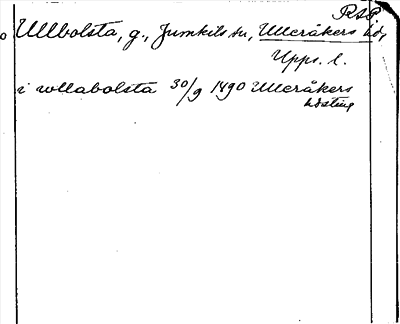 RAP
Ullbolsta, g., Jumkils sn, Ulleråkers hd,
Upps. l.
i wllabolsta 30/9 1490 Ulleråkers
hdsting